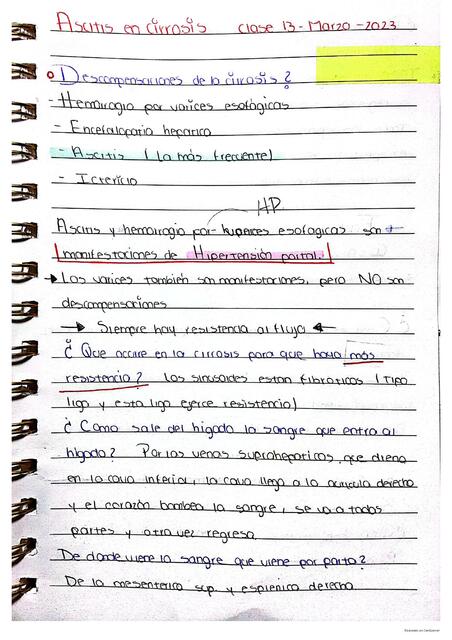 Ascitis en cirrosis clase 13-Marzo-2023
Descompensaciones de la cirrosis?
- Hemorragia por varices esofágicas
- Encefalopatia hepatica
- Ascitis (la más frecuente)
- Ictericia
HP
Ascitis y hemorragia por varices esofagicas son
manifestaciones de Hipertensión portal.
→ Las varices también son manifestaciones, pero NO son
descompensaciones
→ Siempre hay resistencia al flujo ←
¿Que ocurre en la cirrosis para que haya más
resistencia? Los sinusoides estan fibroticos (Tipo
liga y esta liga ejerce resistencia)
¿Como sale del higado la sangre que entra al
higado? Por las venas suprahepaticas, que drena
en la cava inferior, la cava llega a la auricula derecha
y el corazón bombea la sangre, se va a todas
partes y otra vez regresa.
De donde viene la sangre que viene por porta?
De la mesenterica sup. y esplenica derecha.